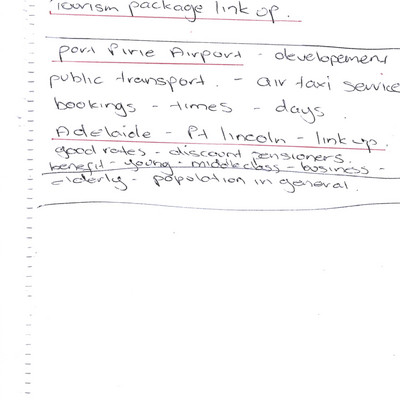 Tourism package link up.
port Pirie Airport - developement
public transport. - air taxi service
bookings - times - days.
Adelaide - Pt lincoln - link up.
good rates - discount pensioners.
benefit - young - middleclass - business -
elderly - population in general.